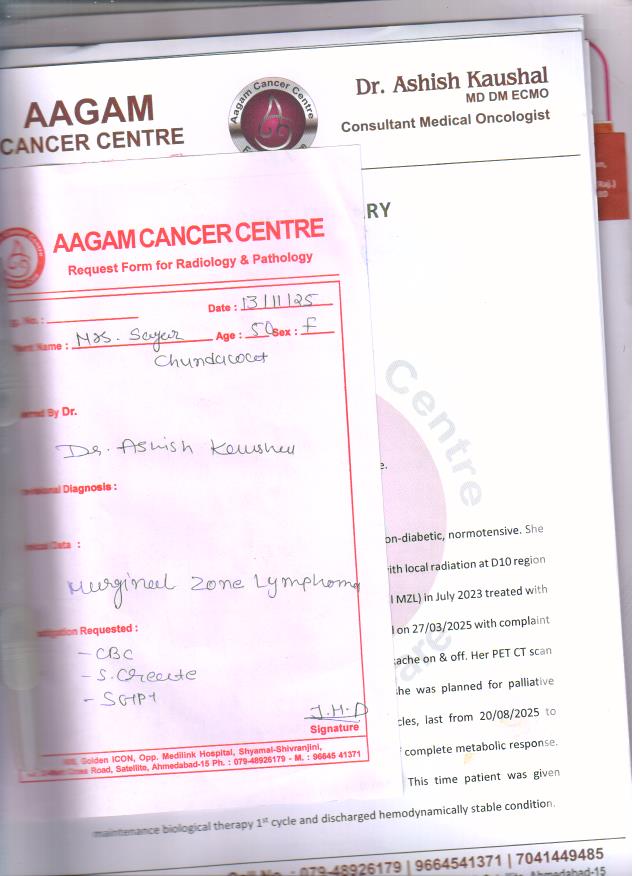 AAGAM
CANCER CENTRE
Aagam Cancer Centre
Dr. Ashish Kaushal
MD DM ECMO
Consultant Medical Oncologist
RY
AAGAM CANCER CENTRE
Request Form for Radiology & Pathology
Date : 13/11/25
No. :
Name : Mrs. Sayar Age : 50 Sex : F
By Dr.
Dr. Ashish
Diagnosis :
Data :
Zone Lymphoma
Requested :
- CBC
- S. Create
- SGPT
Signature
Golden ICON, Opp. Medilink Hospital, Shyamal-Shivranjini,
Road, Satellite, Ahmedabad-15 Ph. : 079-48926179 - M. : 96645 41371
Centre
e.
on-diabetic, normotensive. She
ith local radiation at D10 region
l MZL) in July 2023 treated with
l on 27/03/2025 with complaint
ache on & off. Her PET CT scan
he was planned for palliative
cles, last from 20/08/2025 to
complete metabolic response.
This time patient was given
maintenance biological therapy 1st cycle and discharged hemodynamically stable condition.
079-48926179 | 9664541371 | 7041449485